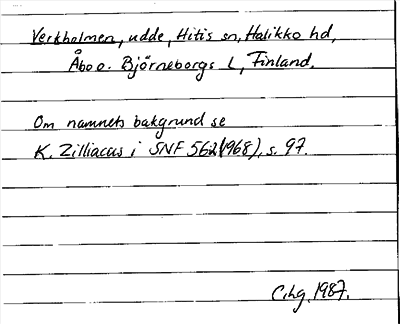 Verkholmen, udde, Hitis sn, Halikko hd,
Åbo o. Björneborgs L, Finland.
Om namnets bakgrund se
K. Zilliacus i SNF 562 (1968), s. 97.
C.hg. 1987.